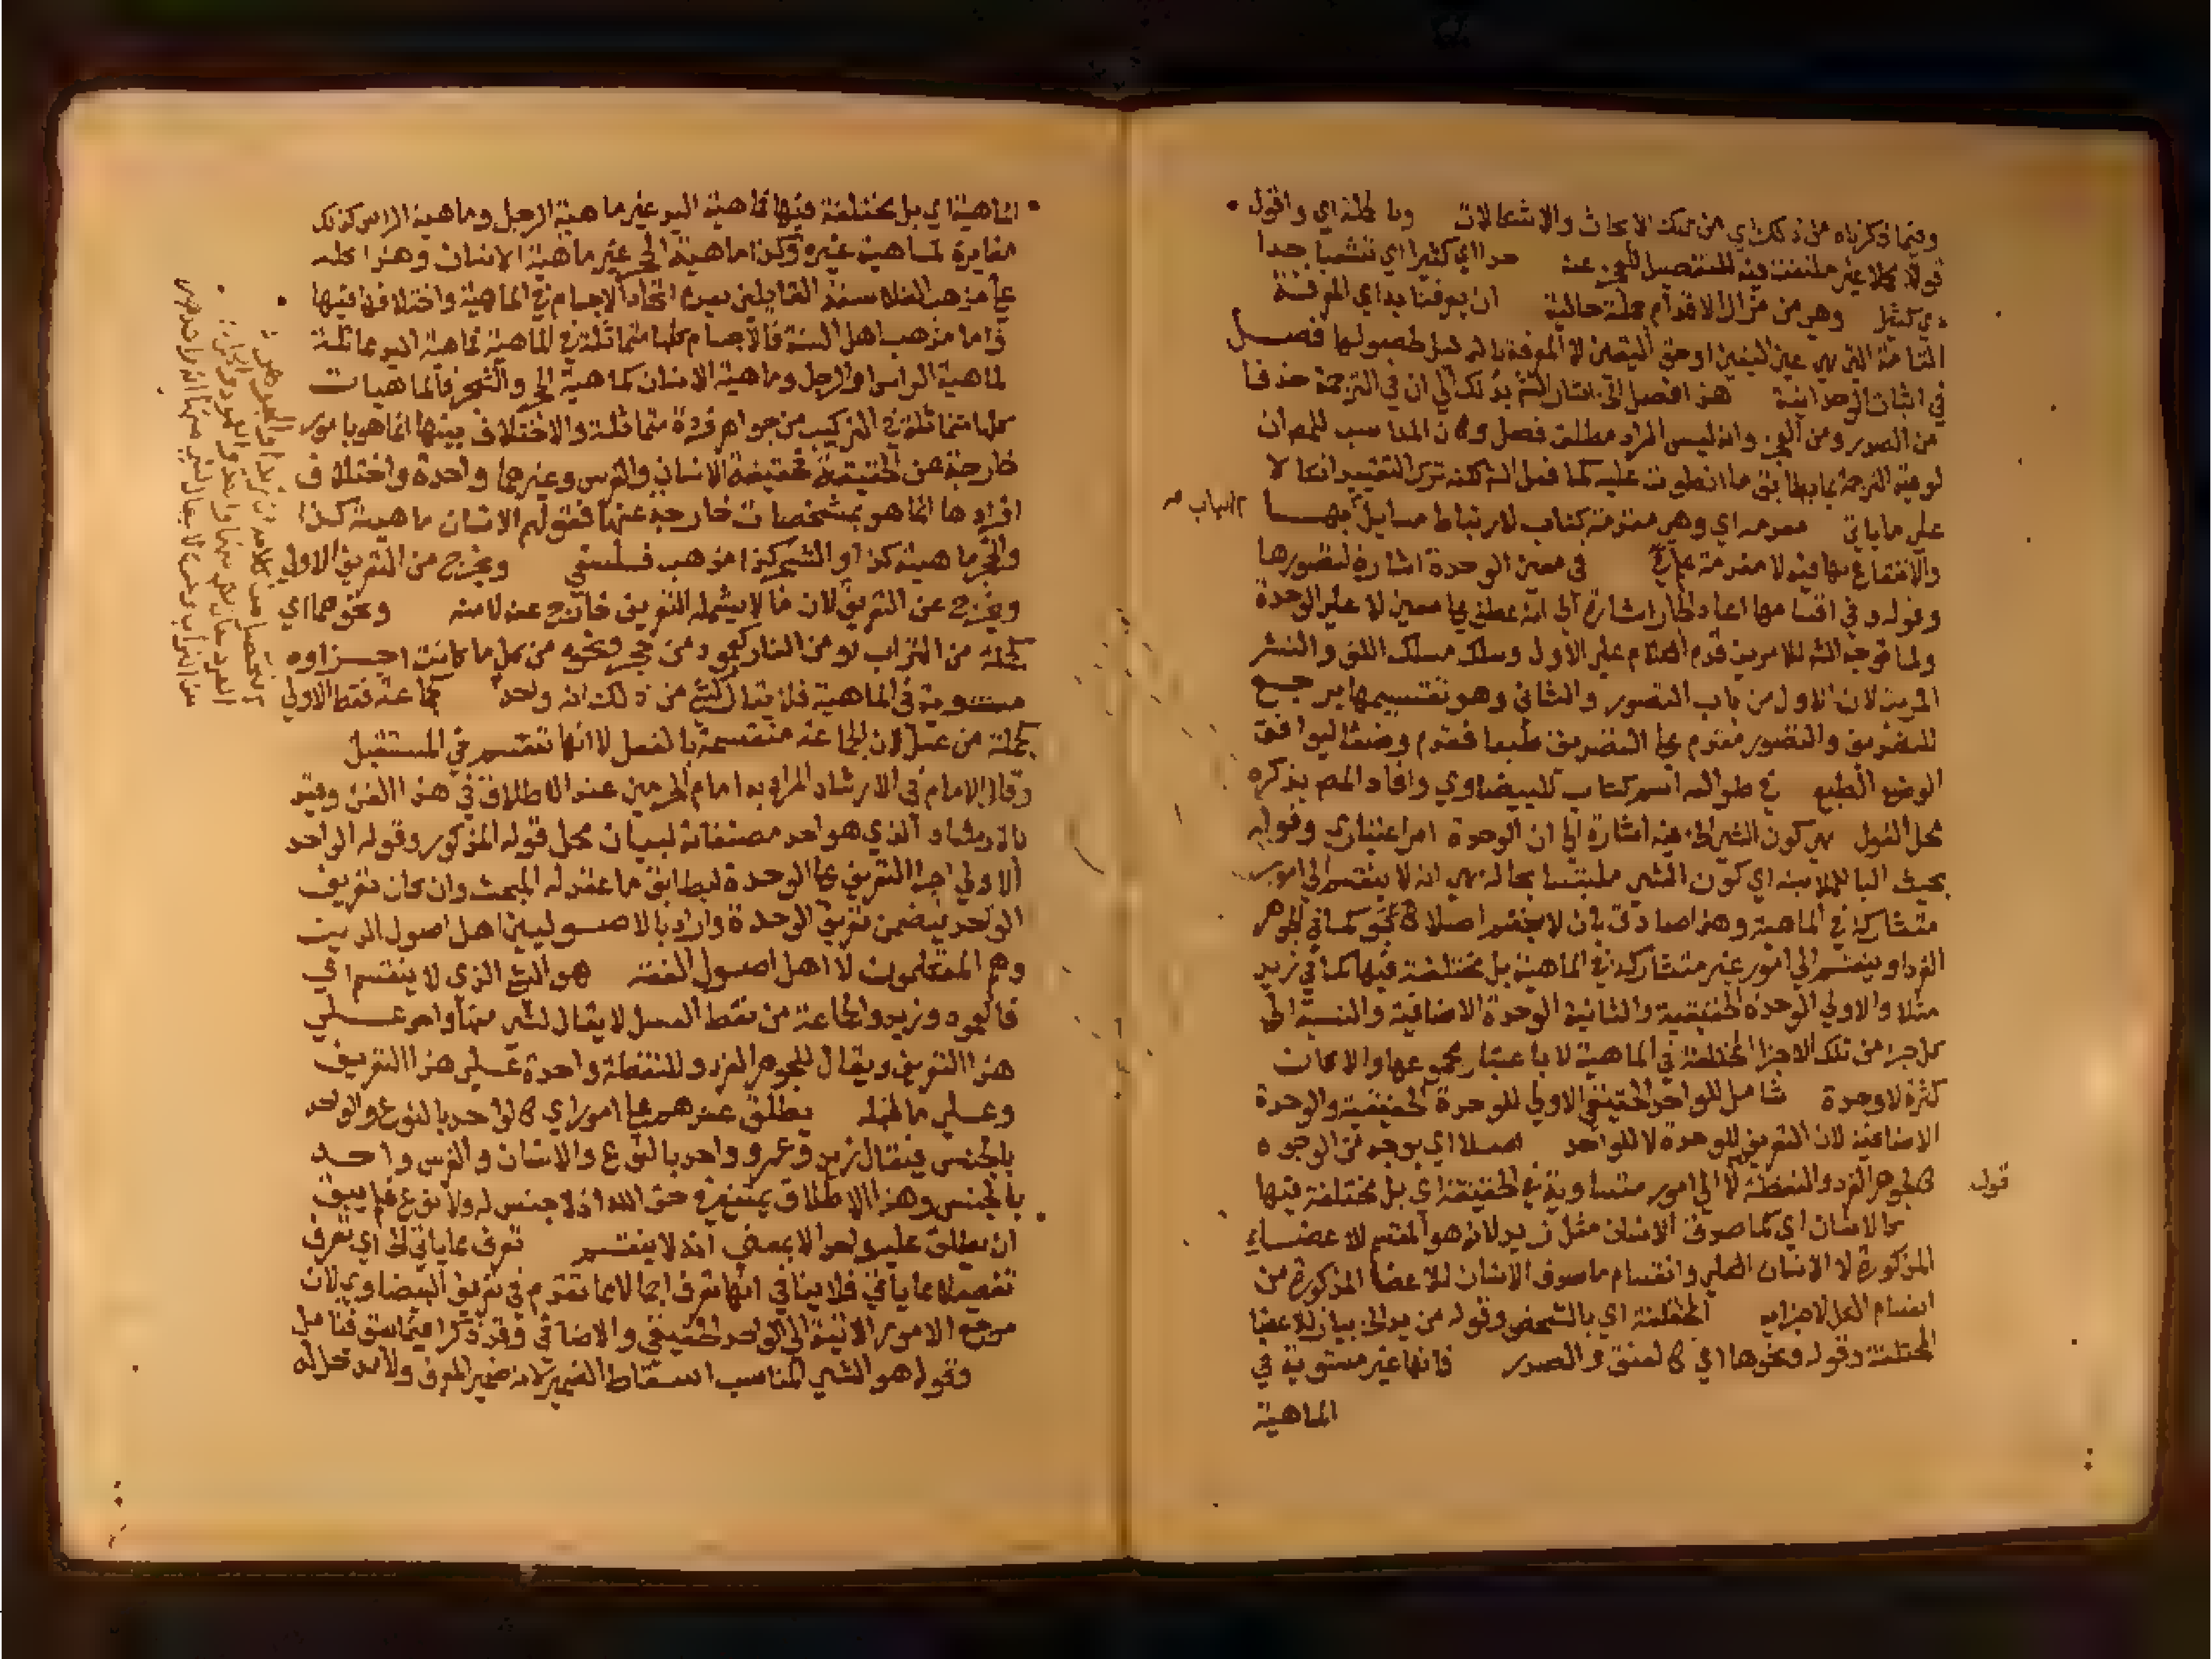 وفيما ذكرناه من ذلك اي من تلك الابحاث والاشكالات وبالجملة اي واقول
قولا كلا غير ملتفت فيه للتفصيل للعجز عنه جدا اي كثيرا اي تشعبا جدا
وهي من مزال الاقدام جملة حالية ان يوفقنا بداي المعرفة
التامة التي هي عين اليقين او حق اليقين لا المعرفة بالدليل لحصولها فصل
في اثبات الوحدانية هذا فصل الخ اشار الش بذلك الي ان في الترجمة حذفا
من الصدر ومن العجز وانه ليس المراد مطلق فصل وكان المناسب للمص ان
يوفي الترجمة بما يطابق ما انطوت عليه كما فعل الش لكنه ترك التقييد اتكالا
علي ما ياتي مقدمة اي وهي مقدمة كتاب لارتباط مسايل بها
والانتفاع بها فيه لا مقدمة علم في معني الوحدة اشارة لتصورها
وقوله وفي اقسامها اعاد الجار اشارة الي انه عطف علي معني لا علي الوحدة
ولما توجه الش للامرين قدم الكلام علي الاول وسلك مسلك اللف والنشر
المرتب لان الاول من باب التصور والثاني وهو تقسيمها يرجع
للتصديق والتصور مقدم علي التصديق طبعا فقدم وضعا ليوافق
الوضع الطبع في طوالعه اسم كتاب للبيضاوي وافاد المص بذكره
محل القول هي كون الشي الخ فيه اشارة الي ان الوحدة امر اعتباري وقوله
بحيث البا للملابسة اي كون الشي ملتبسا بحالة هي انه لا ينقسم الي امور
متشاركة في الماهية وهذا صادق بان لا ينقسم اصلا كما في الجوهر
الفرد او ينقسم الي امور غير متشاركة في الماهية بل مختلفة فيها كما في زيد
مثلا والاولي الوحدة الحقيقية والثانية الوحدة الاضافية والنسبة الي
كل جزء من تلك الاجزا المختلفة في الماهية لا باعتبار مجموعها والا كانت
كثرة لا وحدة شامل للواحد الحقيقي الاولي للوحدة الحقيقية والوحدة
الاضافية لان التعريف للوحدة لا للواحد اصلا اي بوجه من الوجوه
كالجوهر الفرد والنقطة لا الي امور متساوية في الحقيقة اي بل مختلفة فيها
كالانسان اي كما صدق الانسان مثل زيد لانه هو المنقسم للاعضاء
المذكورة لا الانسان الكلي وانقسام ما صدق الانسان للاعضا المذكورة من
انقسام الكل لاجزايه المختلفة اي بالشخص وقوله من يد الخ بيان للاعضا
المختلفة وقوله ونحوها اي كالعنق والصدر فانها غير مستوية في
الماهية
قوله
الماهية اي بل مختلفة فيها فماهية اليد غير ماهية الرجل وماهية الراس كذلك
مغايرة لماهية غيره وكذا ماهية الحجر غير ماهية الانسان وهذا كله
علي مذهب الفلاسفة القايلين بعدم اتحاد الاجسام في الماهية واختلافها فيها
واما مذهب اهل السنة فالاجسام كلها متماثلة في الماهية فماهية اليد مماثلة
لماهية الراس او الرجل وماهية الانسان كماهية الحجر والشجر فالماهيات
كلها متماثلة في التركيب من جواهر فردة متماثلة والاختلاف بينها انما هو بامور
خارجة عن الحقيقة فحقيقة الانسان والفرس وغيرهما واحدة واختلاف
افرادها انما هو بمشخصات خارجة عنها فقولهم الانسان ماهية كذا
والحجر ماهية كذا والشجر كذا مذهب فلسفي ويخرج من التعريف الاولي
ويخرج عن التعريف لان ما لا يشمله التعريف خارج عنه لا منه ونحوهما اي
كجملة من التراب او من النار كعمود من حجر ونحوه من كل ما كانت اجزاوه
مستوية في الماهية فلا يقال لشي من ذلك انه واحد كجماعة نقط الاولي
كجملة من عسل لان الجماعة منقسمة بالفعل لا انها تنقسم في المستقبل
وقال الامام في الارشاد المراد به امام الحرمين عند الاطلاق في هذا الفن وقيد
بالارشاد الذي هو احد مصنفاته لبيان محل قوله المذكور وقوله الواحد
الاولي اجرا التعريف علي الوحدة ليطابق ما عقد له المبحث وان كان تعريف
الواحد يتضمن تعريف الوحدة واراد بالاصوليين اهل اصول الدين
وهم المتكلمون لا اهل اصول الفقه هو الشي الذي لا ينقسم اي
فالعمود وزيد والجماعة من نقط العسل لا يقال لشي منها واحد علي
هذا التعريف ويقال للجوهر الفرد وللنقطة واحدة علي هذا التعريف
وعلي ما قبله يطلق عندهم علي امور اي كالواحد بالنوع والواحد
بالجنس فيقال زيد وعمرو واحد بالنوع والانسان والفرس واحد
بالجنس وهذا الاطلاق يمتنع في حق الله اذ لا جنس له ولا نوع فلم يبق
ان يطلق عليه واحد الا بمعني انه لا ينقسم تعرف بما ياتي الخ اي تعرف
تفصيلا بما ياتي فلا ينافي انها تعرف اجمالا مما تقدم في تعريف البيضاوي لان
مرجع الامور الاتية الي الواحد الحقيقي والاضافي وقد ذكرا فيما سبق فتامل
وقوله هو الشي المناسب اسقاط الضمير لانه ضمير المعرف ولا مدخل له